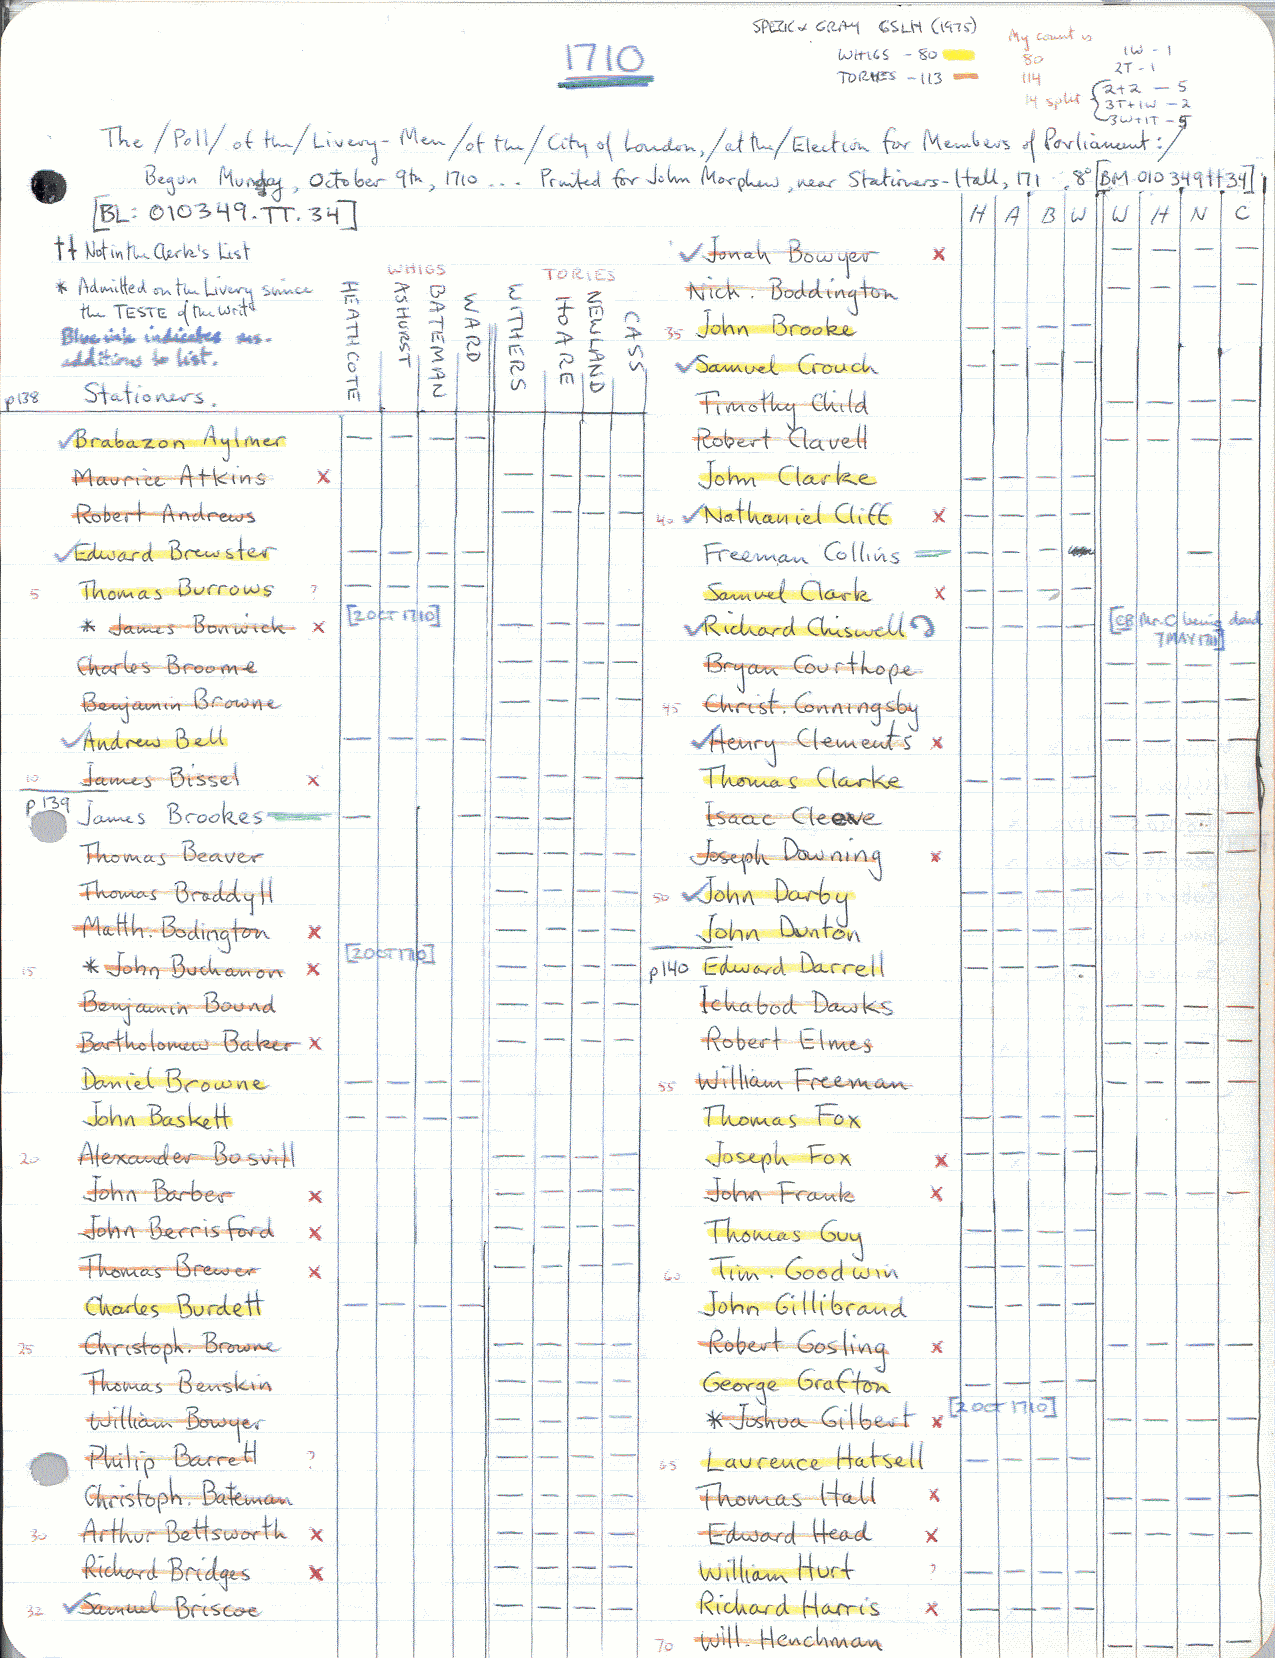 SPECK & GRAY GSLH (1975)
WHIGS - 80
TORIES - 113
My count is
80
114
14 split
1W - 1
2T - 1
2+2 - 5
3T+1W - 2
3W+1T - 5
1710
The / Poll / of the / Livery-Men / of the / City of London, / at the / Election for Members of Parliament: /
Begun Munday, October 9th, 1710 ... Printed for John Morphew, near Stationers-Hall, 171 . 8° [BM 010349 tt 34]
[BL: 010349.TT.34]
†† Not in the Clerk's List
* Admitted on the Livery since
the TESTE of the Writ
Blue ink indicates
additions to list.
WHIGS
TORIES
HEATHCOTE
ASHURST
BATEMAN
WARD
WITHERS
HOARE
NEWLAND
CASS
p138 Stationers.
✓ Brabazon Aylmer
Maurice Atkins x
Robert Andrews
✓ Edward Brewster
5 Thomas Burrows ?
* James Bonwick x [2 OCT 1710]
Charles Broome
Benjamin Browne
✓ Andrew Bell
10 James Bissel x
p139 James Brookes
Thomas Beaver
Thomas Braddyll
Matth. Bodington x
15 * John Buchanon x [2 OCT 1710]
Benjamin Bound
Bartholomew Baker x
Daniel Browne
John Baskett
20 Alexander Bosvill
John Barber x
John Berrisford x
Thomas Brewer x
Charles Burdett
25 Christoph. Browne
Thomas Benskin
William Bowyer
Philip Barrett ?
Christoph. Bateman
30 Arthur Bettsworth x
Richard Bridges x
32 ✓ Samuel Briscoe
H A B W W H N C
✓ Jonah Bowyer x
Nich. Boddington
35 John Brooke
✓ Samuel Crouch
Timothy Child
Robert Clavell
John Clarke
40 ✓ Nathaniel Cliff x
Freeman Collins
Samuel Clark x
✓ Richard Chiswell ? [CB Mr. C being dead
7 MAY 1711]
Bryan Courthope
45 Christ. Conningsby
✓ Henry Clements x
Thomas Clarke
Isaac Cleeve
Joseph Downing x
50 ✓ John Darby
John Dunton
p140 Edward Darrell
Ichabod Dawks
Robert Elmes
55 William Freeman
Thomas Fox
Joseph Fox x
John Frank x
Thomas Guy
60 Tim. Goodwin
John Gillibrand
Robert Gosling x
George Grafton
* Joshua Gilbert x [2 OCT 1710]
65 Laurence Hatsell
Thomas Hall x
Edward Head x
William Hurt ?
Richard Harris x
70 Will. Henchman